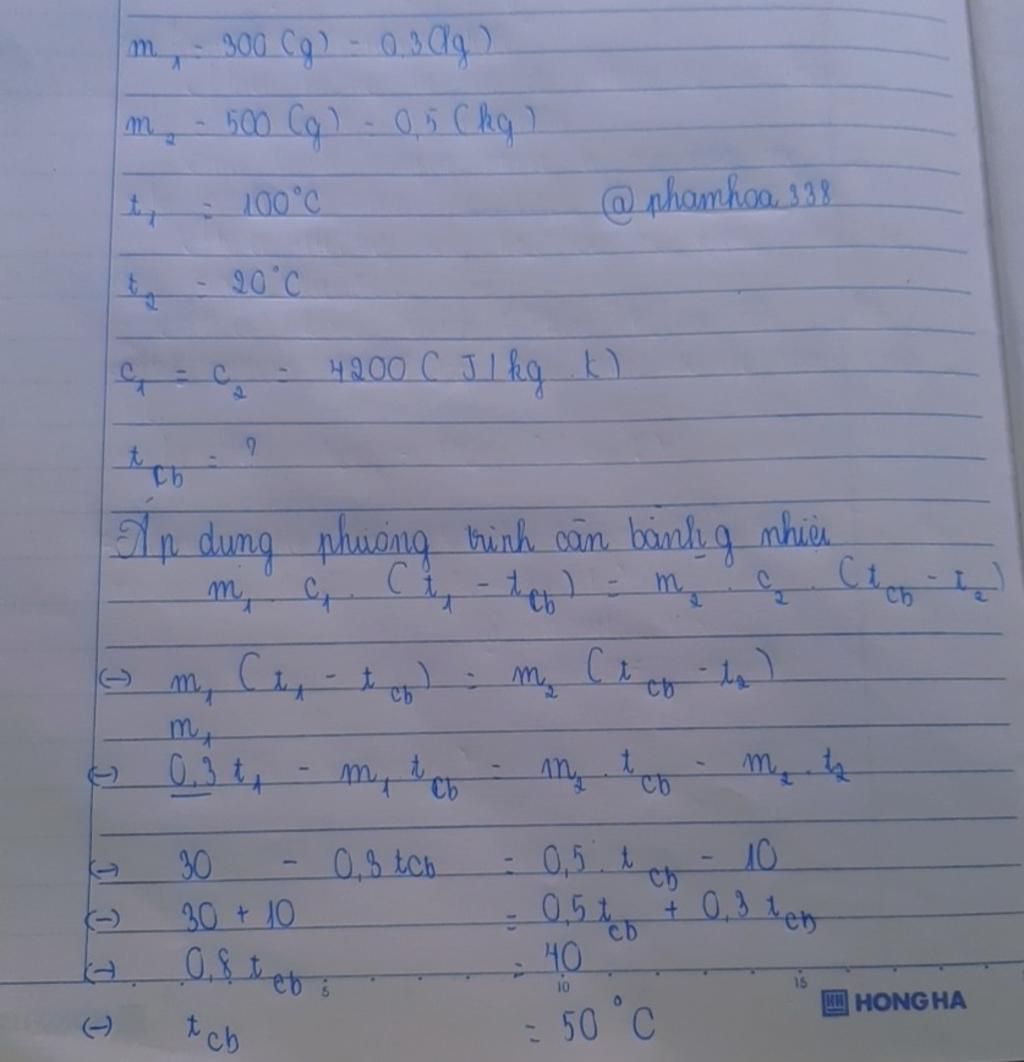 m₁ = 300 (g) = 0,3 (kg)
m₂ = 500 (g) = 0,5 (kg)
t₁ = 100°C @phamhoa338
t₂ = 20°C
c₁ = c₂ = 4200 ( J/kg . K)
t_cb = ?
Áp dụng phương trình cân bằng nhiệt
m₁ . c₁ . (t₁ - t_cb) = m₂ . c₂ . (t_cb - t₂)
(-) m₁ (t₁ - t_cb) = m₂ (t_cb - t₂)
m₁
(-) 0,3 t₁ - m₁ t_cb = m₂ . t_cb - m₂ . t₂
(-) 30 - 0,3 t_cb = 0,5 . t_cb - 10
(-) 30 + 10 = 0,5 t_cb + 0,3 t_cb
(-) 0,8 t_cb = 40
5 10 15
HONG HA
(-) t_cb = 50°C